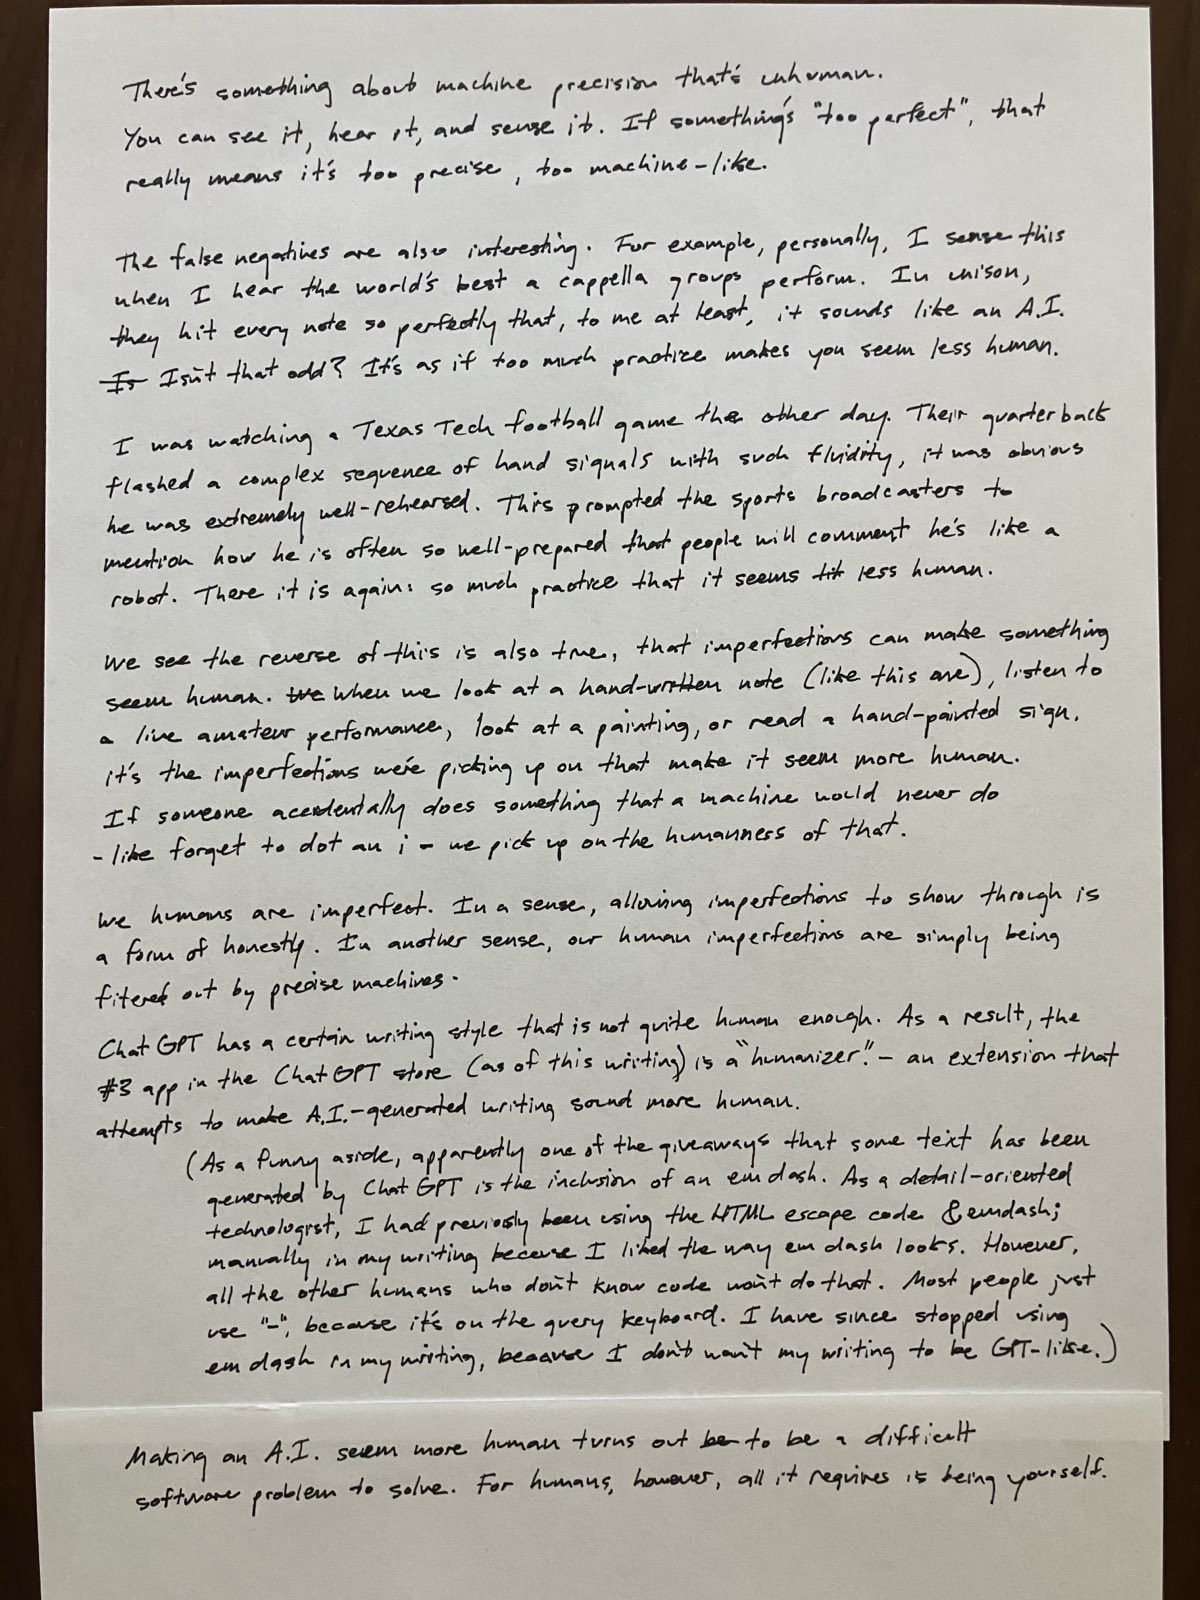 There's something about machine precision that's unhuman.
You can see it, hear it, and sense it. If something's "too perfect", that
really means it's too precise, too machine-like.
The false negatives are also interesting. For example, personally, I sense this
when I hear the world's best a cappella groups perform. In unison,
they hit every note so perfectly that, to me at least, it sounds like an A.I.
Is Isn't that odd? It's as if too much practice makes you seem less human.
I was watching a Texas Tech football game the other day. Their quarterback
flashed a complex sequence of hand signals with such fluidity, it was obvious
he was extremely well-rehearsed. This prompted the sports broadcasters to
mention how he is often so well-prepared that people will comment he's like a
robot. There it is again: so much practice that it seems less human.
We see the reverse of this is also true, that imperfections can make something
seem human. We When we look at a hand-written note (like this one), listen to
a live amateur performance, look at a painting, or read a hand-painted sign,
it's the imperfections we're picking up on that make it seem more human.
If someone accidentally does something that a machine would never do
- like forget to dot an i - we pick up on the humanness of that.
We humans are imperfect. In a sense, allowing imperfections to show through is
a form of honestly. In another sense, our human imperfections are simply being
fitered out by precise machines.
Chat GPT has a certain writing style that is not quite human enough. As a result, the
#3 app in the Chat GPT store (as of this writing) is a "humanizer." - an extension that
attempts to make A.I.-generated writing sound more human.
(As a funny aside, apparently one of the giveaways that some text has been
generated by Chat GPT is the inclusion of an em dash. As a detail-oriented
technologist, I had previously been using the HTML escape code &emdash;
manually in my writing because I liked the way em dash looks. However,
all the other humans who don't know code won't do that. Most people just
use "-", because it's on the qwery keyboard. I have since stopped using
em dash in my writing, because I don't want my writing to be GPT-like.)
Making an A.I. seem more human turns out be to be a difficult
software problem to solve. For humans, however, all it requires is being yourself.